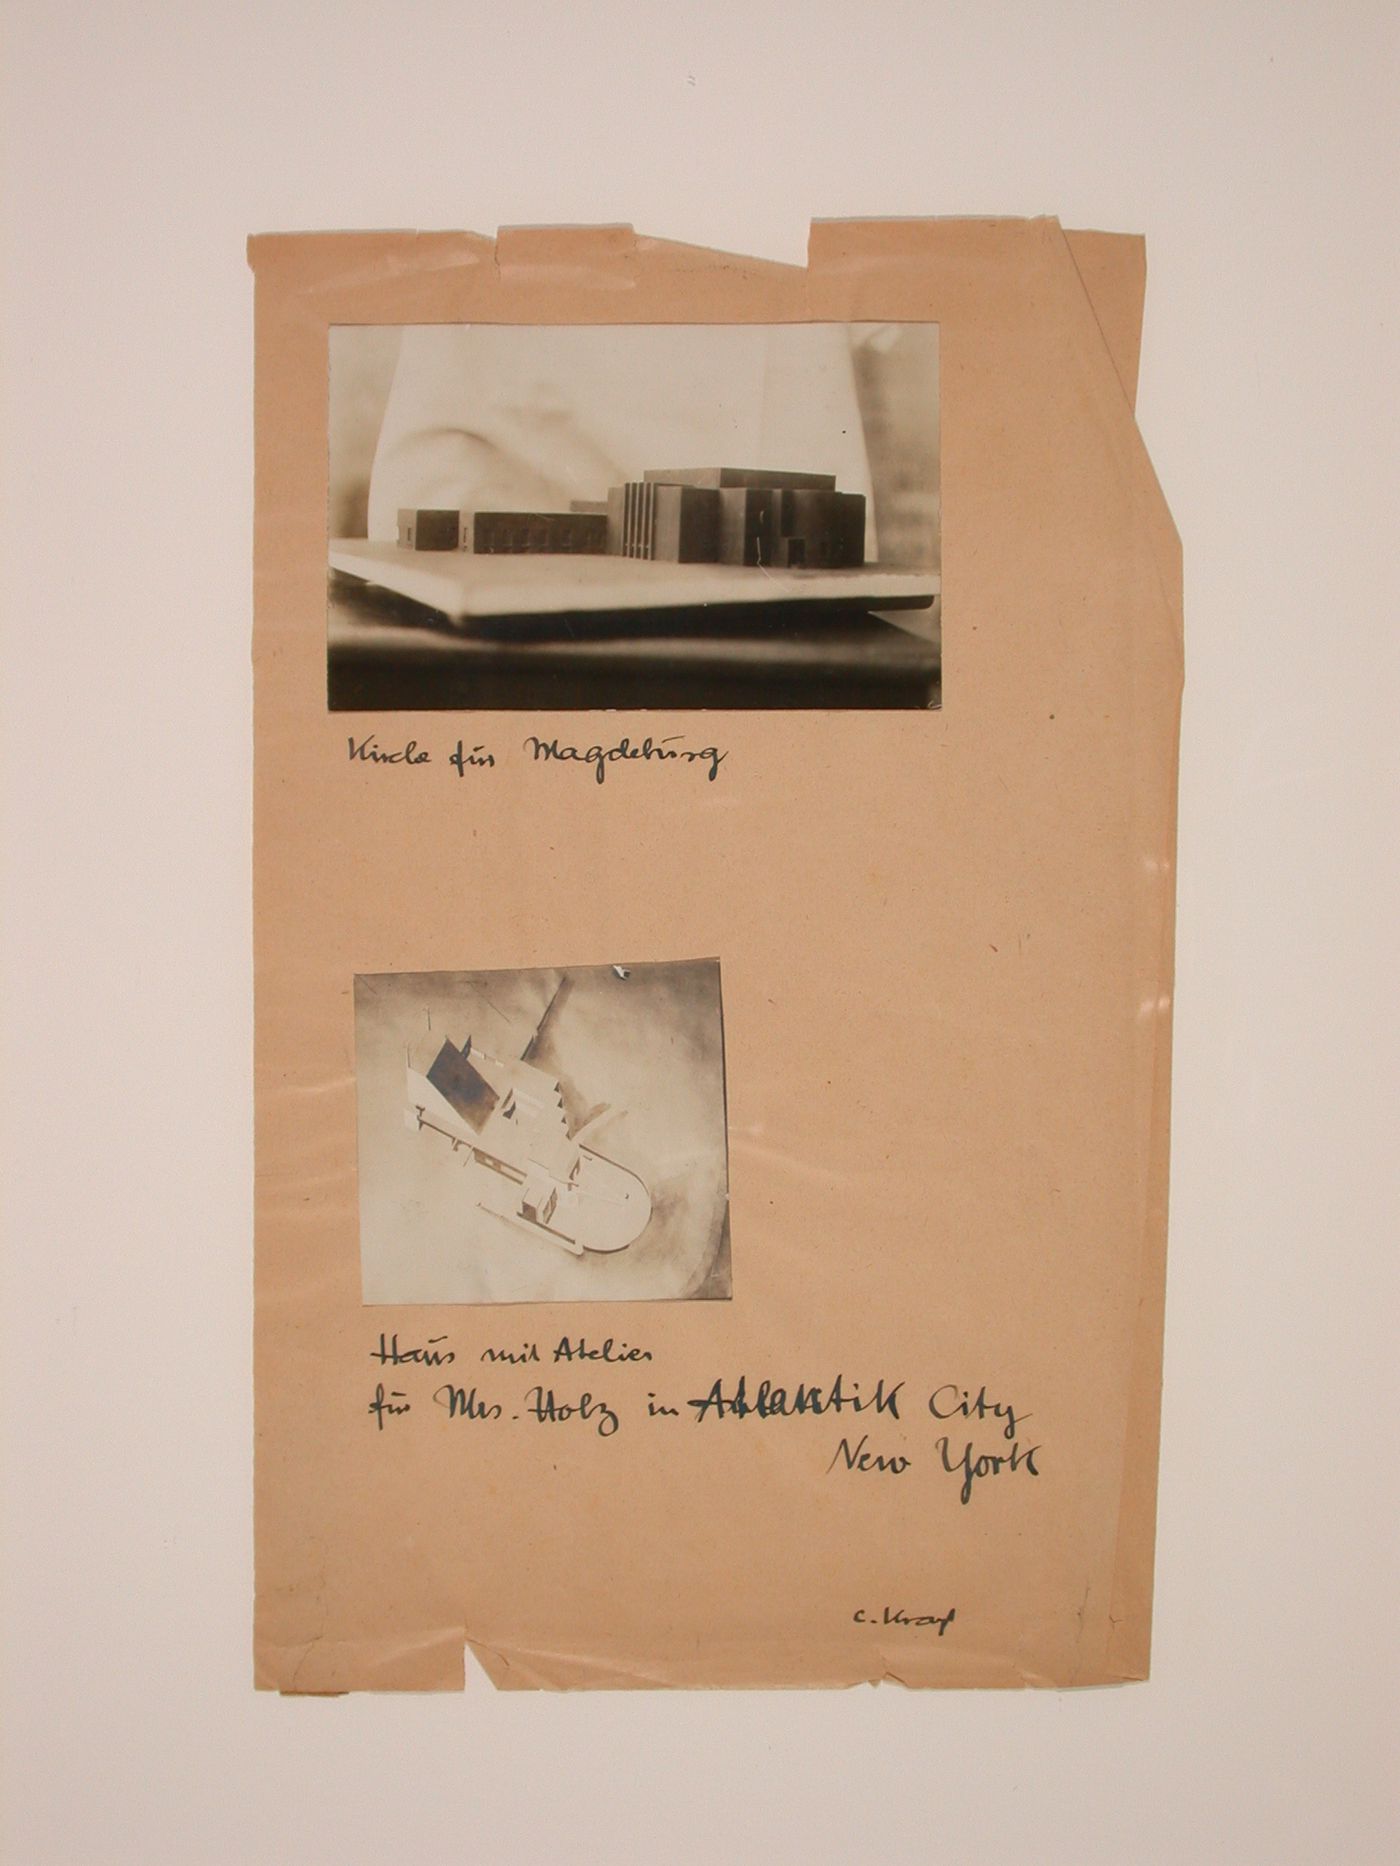 Kirche für Magdeburg
Haus mit Atelier
für Mrs. Holz in Atlantik City
New York
C. Krayl